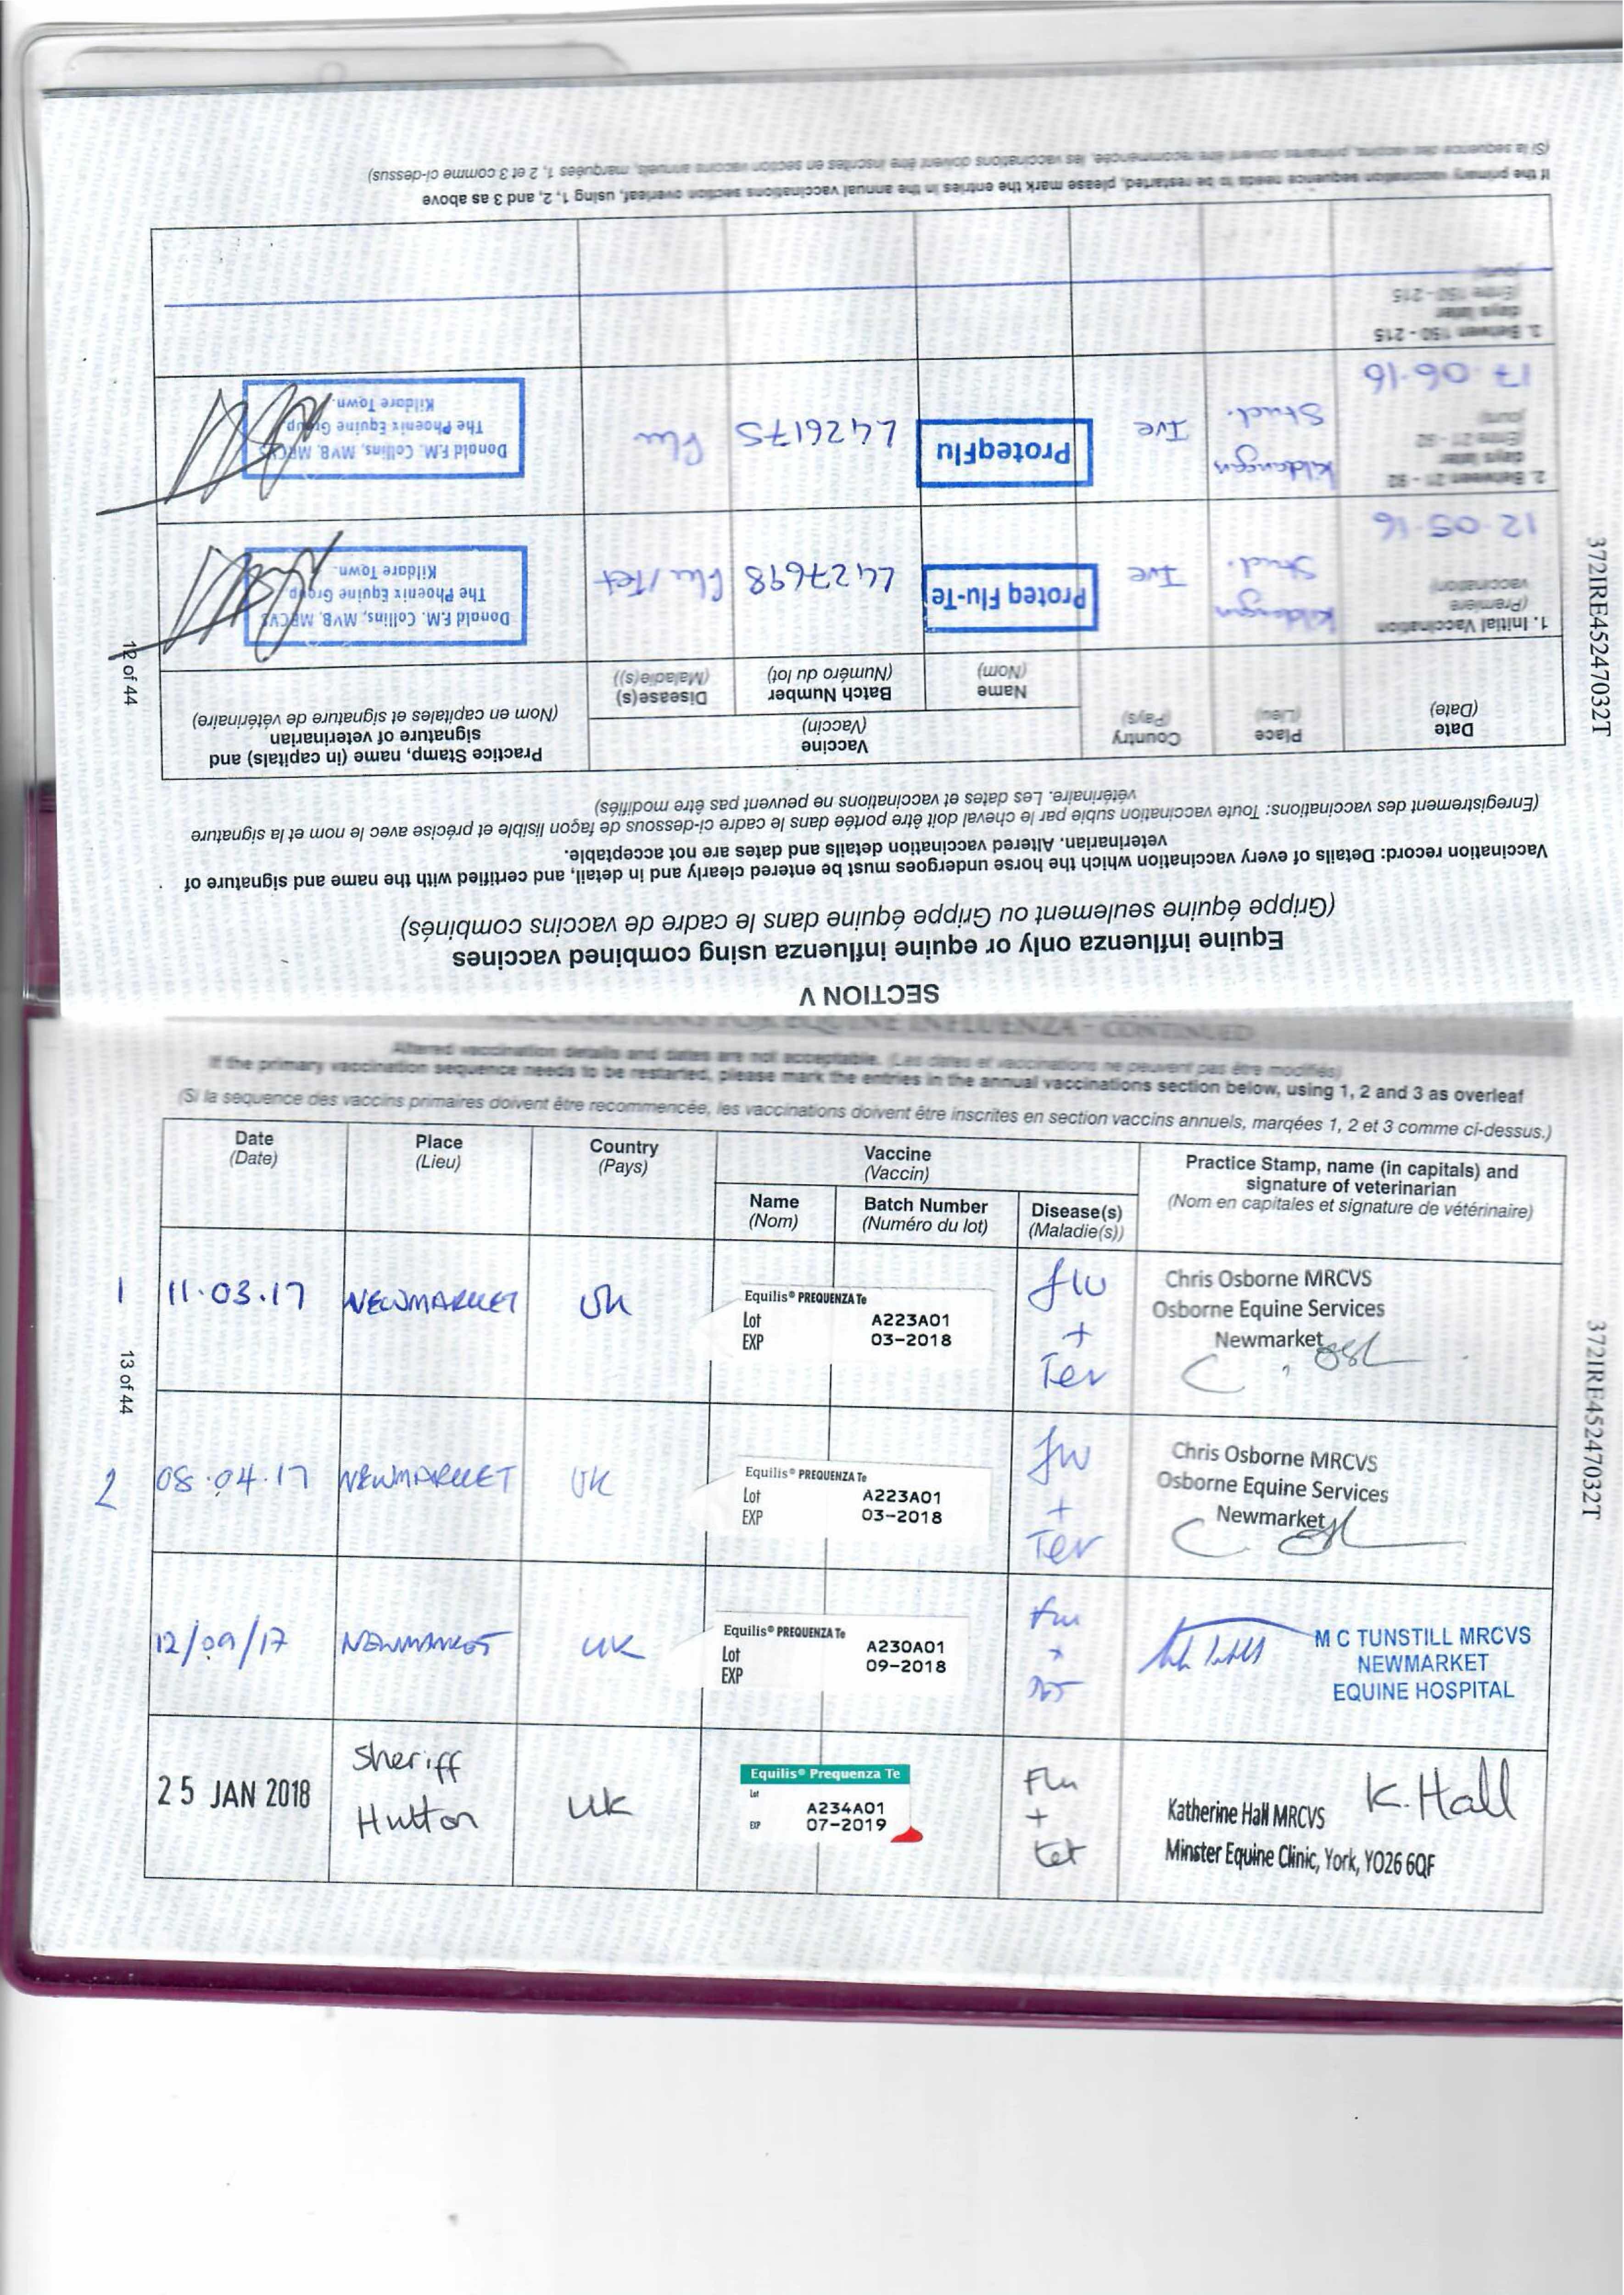 SECTION V
Equine influenza only or equine influenza using combined vaccines
(Grippe équine seulement ou Grippe équine dans le cadre de vaccins combinés)
Vaccination record: Details of every vaccination which the horse undergoes must be entered clearly and in detail, and certified with the name and signature of
veterinarian. Altered vaccination details and dates are not acceptable.
(Enregistrement des vaccinations: Toute vaccination subie par le cheval doit être portée dans le cadre ci-dessous de façon lisible et précise avec le nom et la signature
vétérinaire. Les dates et vaccinations ne peuvent pas être modifiés)
Date
(Date)
Place
(Lieu)
Country
(Pays)
Vaccine
(Vaccin)
Name
(Nom)
Batch Number
(Numéro du lot)
Disease(s)
(Maladie(s))
Practice Stamp, name (in capitals) and
signature of veterinarian
(Nom en capitales et signature de vétérinaire)
1. Initial Vaccination
(Premiere
vaccination)
12.05.16
Kildangan
Stud.
Ire
Proteq Flu-Te
L427698
Flu/Tet
Donald F.M. Collins, MVB, MRCVS
The Phoenix Equine Group
Kildare Town.
2. Between 21 - 92
days later
(Entre 21 - 92
jours)
17.06.16
Kildangan
Stud.
Ire
ProteqFlu
L426175
Flu
Donald F.M. Collins, MVB, MRCVS
The Phoenix Equine Group
Kildare Town.
3. Between 150 - 215
days later
(Entre 150 - 215
jours)
If the primary vaccination sequence needs to be restarted, please mark the entries in the annual vaccinations section overleaf, using 1, 2, and 3 as above
(Si la sequence des vaccins, primaires doivent être recommencée, les vaccinations doivent être inscrites en section vaccins annuels, marquées 1, 2 et 3 comme ci-dessus)
12 of 44
372IRE45247032T
VACCINATIONS FOR EQUINE INFLUENZA - CONTINUED
Altered vaccination details and dates are not acceptable. (Les dates et vaccinations ne peuvent pas être modifiés)
If the primary vaccination sequence needs to be restarted, please mark the entries in the annual vaccinations section below, using 1, 2 and 3 as overleaf
(Si la sequence des vaccins primaires doivent être recommencée, les vaccinations doivent être inscrites en section vaccins annuels, marqées 1, 2 et 3 comme ci-dessus.)
Date
(Date)
Place
(Lieu)
Country
(Pays)
Vaccine
(Vaccin)
Name
(Nom)
Batch Number
(Numéro du lot)
Disease(s)
(Maladie(s))
Practice Stamp, name (in capitals) and
signature of veterinarian
(Nom en capitales et signature de vétérinaire)
1
11.03.17
NEWMARKET
UK
Equilis® PREQUENZA Te
Lot A223A01
EXP 03-2018
flu
+
Tet
Chris Osborne MRCVS
Osborne Equine Services
Newmarket
2
08.04.17
NEWMARKET
UK
Equilis® PREQUENZA Te
Lot A223A01
EXP 03-2018
flu
+
Tet
Chris Osborne MRCVS
Osborne Equine Services
Newmarket
12/09/17
NEWMARKET
UK
Equilis® PREQUENZA Te
Lot A230A01
EXP 09-2018
Flu
M C TUNSTILL MRCVS
NEWMARKET
EQUINE HOSPITAL
25 JAN 2018
Sheriff
Hutton
UK
Equilis® Prequenza Te
Lot
A234A01
EXP 07-2019
Flu
+
tet
K. Hall
Katherine Hall MRCVS
Minster Equine Clinic, York, YO26 6QF
13 of 44
372IRE45247032T